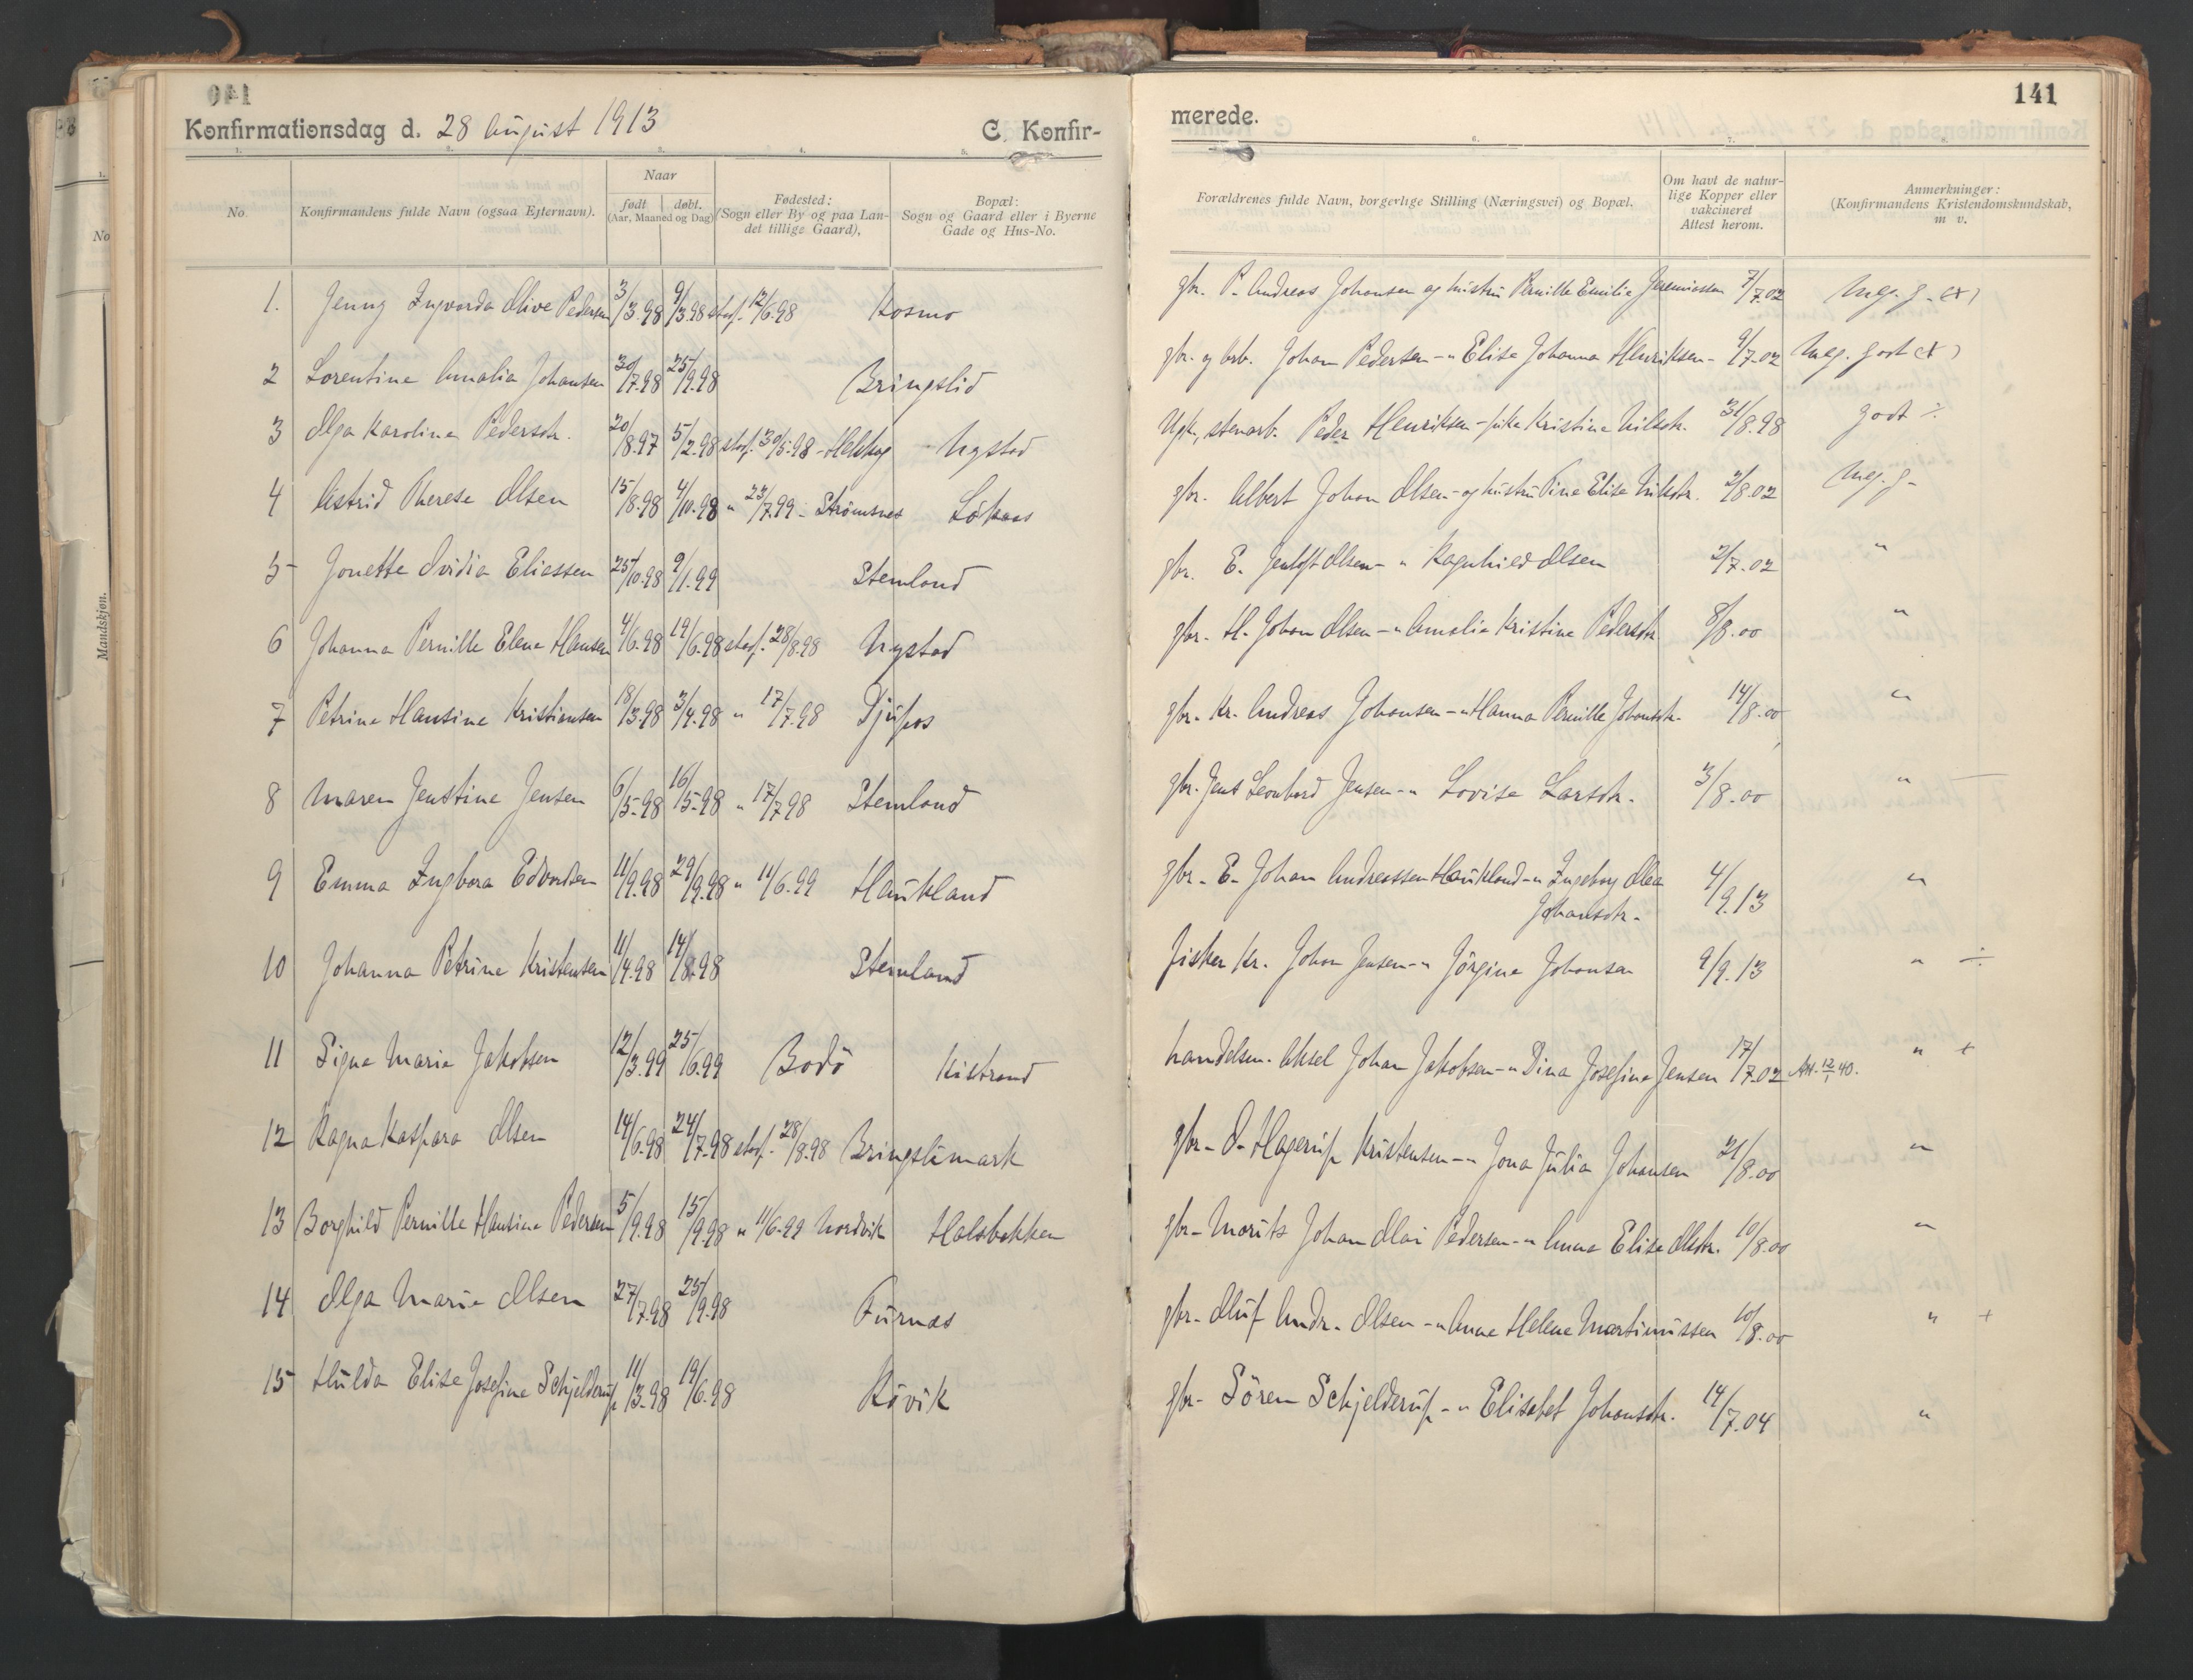 140
Konfirmationsdag d. 28 August 1913
C. Konfir-
1. 2. 3. 4. 5.
No.
Konfirmandens fulde Navn (ogsaa Efternavn).
Naar
født døbt.
(Aar, Maaned og Dag)
Fødested:
(Sogn eller By og paa Lan-
det tillige Gaard),
Bopæl:
Sogn og Gaard eller i Byerne
Gade og Hus-No.
1. Jenny Ingvarda Olive Pedersen 3/3.98 9/3.98 stadf. 12/6.98 Kosmo
2 Lorentine Amalia Johansen 30/7.98 25/9.98 Bringslid
3 Olga Karoline Pedersdtr. 20/8.97 5/2.98 stadf. 30/5.98 - Nystad
4 Astrid Therese Olsen 15/8.98 4/10.98 " 23/7.99 - Strømsnes Løkaas
5 Jonette Ovidia Eliassen 25/10.98 9/1.99 Stemland
6 Johanna Pernille Elene Hansen 4/6.98 19/6.98 stadf. 28/8.98 Nystad
7 Petrine Hansine Kristiansen 18/3.98 3/4.98 " 17/7.98 Djupos
8 Maren Jenstine Jensen 6/5.98 16/5.98 " 17/7.98 Stemland
9 Emma Ingbora Edvardsen 11/9.98 29/9.98 " 11/6.99 Haukland
10 Johanna Petrine Kristensen 11/4.98 14/8.98 Stemland
11 Signe Marie Jakobsen 12/3.99 25/6.99 Bodö Kistrand
12 Ragna Kaspara Olsen 14/6.98 24/7.98 stadf. 28/8.98 Bringslimark
13 Borghild Pernille Hansine Pedersen 5/9.98 15/9.98 " 11/6.99 Nordvik Halsbakken
14 Olga Marie Olsen 27/7.98 25/9.98 Furnes
15 Hulda Elise Josefine Schjelderup 11/3.98 19/6.98 Røvik
No
Mandskjøn.
141
merede.
6. 7.
Forældrenes fulde Navn, borgerlige Stilling (Næringsvei) og Bopæl.
Om havt de natur-
lige Kopper eller
vakcineret
Attest herom.
Anmerkninger:
(Konfirmandens Kristendomskundskab,
m v.
gbr. P. Andreas Johansen og hustru Pernille Emilie Jeremiassen 7/7.02 Meg. g. (+)
gbr. og Johan Pedersen - " Elise Johanna Henriksen - 9/7.02 Meg. godt (+)
Ugk, stenarb. Peder Henriksen - pike Kristine Nilsdtr. 31/8.98 godt ÷
gbr. Albert Johan Olsen - og hustru Tine Elise Nilsdtr. 2/8.02 Meg. g -
gbr. E. Jentoft Olsen - " Ragnhild Olsen 2/7.02 "
gbr. H. Johan Olsen - " Amalie Kristine Pedersdtr. 8/8.00 "
gbr. Kr. Andreas Johansen - " Hanna Pernille Johansdtr. 14/8.00 "
gbr. Jens Leonhard Jensen - " Lovise Larsdtr. 3/8.00 " —
gbr. E. Johan Andreassen Haukland - " Ingeborg Olea 4/9.13 "
Johansdtr.
fisker Kr. Johan Jensen - " Jörgine Johansen 9/9.13 " ÷
handelsm. Aksel Johan Jakobsen - " Dina Josefine Jensen 17/7.02 Att. 12/1 40. " +
gbr. O. Hagerup Kristensen - " Jona Julia Johansen 21/8.00 "
gbr. Morits Johan Olai Pedersen - " Anna Elise Olsdtr. 10/8.00 "
gbr. Oluf Andr. Olsen - " Anne Helene Martinussen 10/8.00 " +
gbr. Sören Schjelderup - " Elisabet Johansdtr. 14/7.04 "